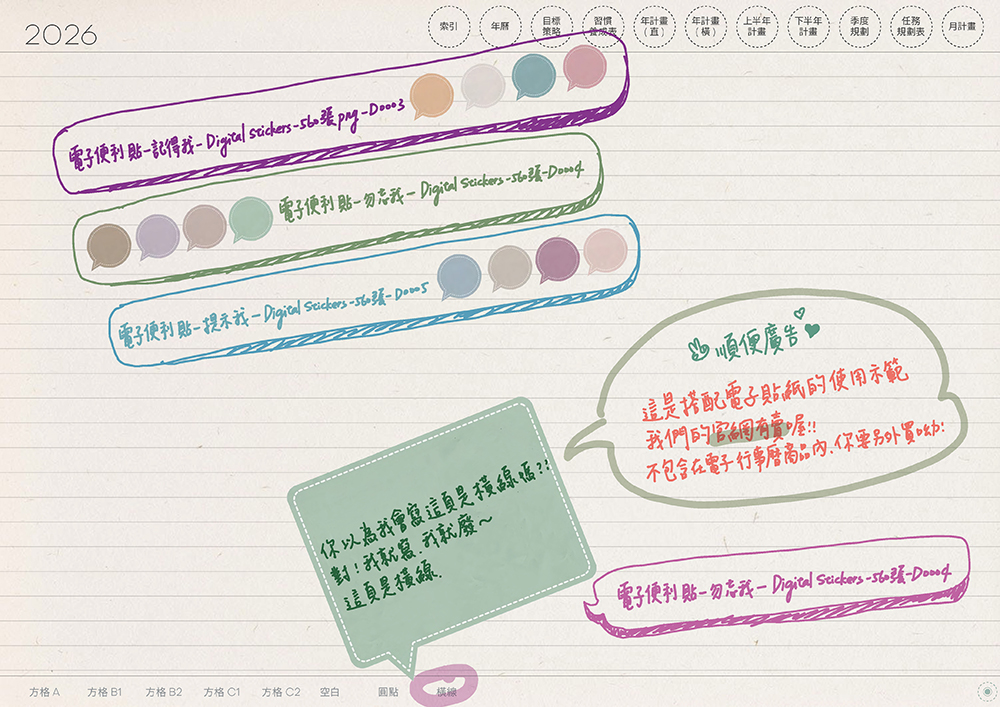 2026
索引
年曆
目標
策略
習慣
養成表
年計畫
(直)
年計畫
(橫)
上半年
計畫
下半年
計畫
季度
規劃
任務
規劃表
月計畫
電子便利貼-記得我-Digital Stickers-560張png-D0003
電子便利貼-勿忘我-Digital Stickers-560張-D0004
電子便利貼-提示我-Digital Stickers-560張-D0005
順便廣告
這是搭配電子貼紙的使用示範
我們的官網有賣喔!!
不包含在電子行事曆商品內.你要另外買呦:
你以為我會寫這頁是橫線嗎?!
對!我就寫.我就廢~
這頁是橫線.
電子便利貼-勿忘我-Digital Stickers-560張-D0004
方格 A
方格 B1
方格 B2
方格 C1
方格 C2
空白
圓點
橫線